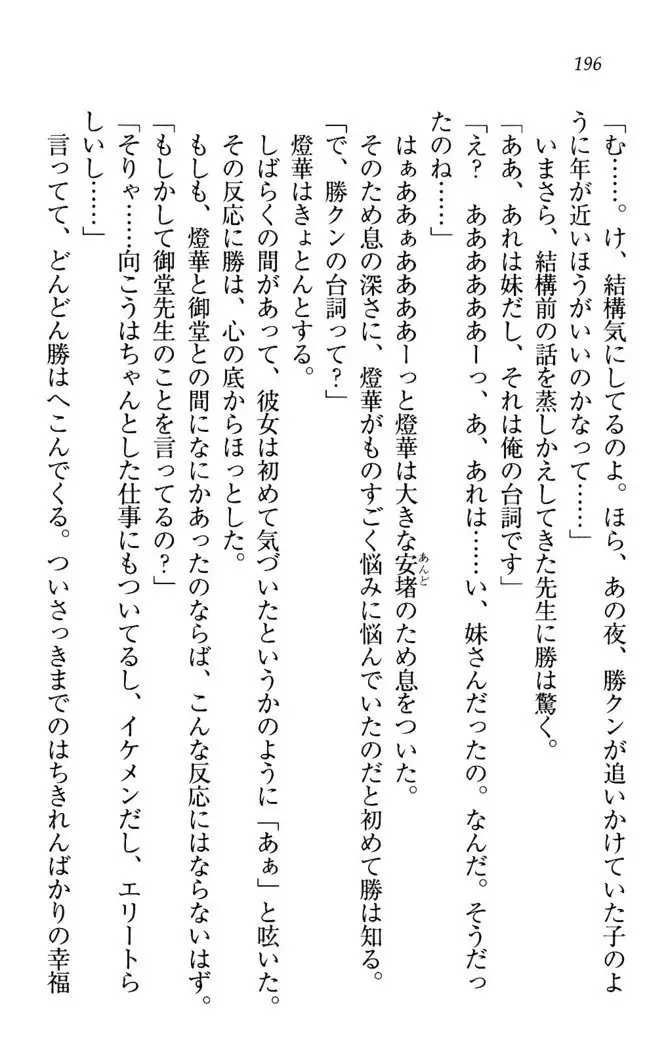 196
「む……。け、結構気にしてるのよ。ほら、あの夜、勝クンが追いかけていた子のよ
うに年が近いほうがいいのかなって……」
いまさら、結構前の話を蒸しかえしてきた先生に勝は驚く。
「ああ、あれは妹だし、それは俺の台詞です」
「え?　ああああああーっ、あ、あれは……い、妹さんだったの。なんだ。そうだっ
たのね……」
はぁああぁああああーっと燈華は大きな安堵のため息をついた。
あんど
そのため息の深さに、燈華がものすごく悩みに悩んでいたのだと初めて勝は知る。
「で、勝クンの台詞って?」
燈華はきょとんとする。
しばらくの間があって、彼女は初めて気づいたというかのように「あぁ」と呟いた。
その反応に勝は、心の底からほっとした。
もしも、燈華と御堂との間になにかあったのならば、こんな反応にはならないはず。
「もしかして御堂先生のことを言ってるの?」
「そりゃ……向こうはちゃんとした仕事にもついてるし、イケメンだし、エリートら
しいし……」
言ってて、どんどん勝はへこんでくる。ついさっきまでのはちきれんばかりの幸福